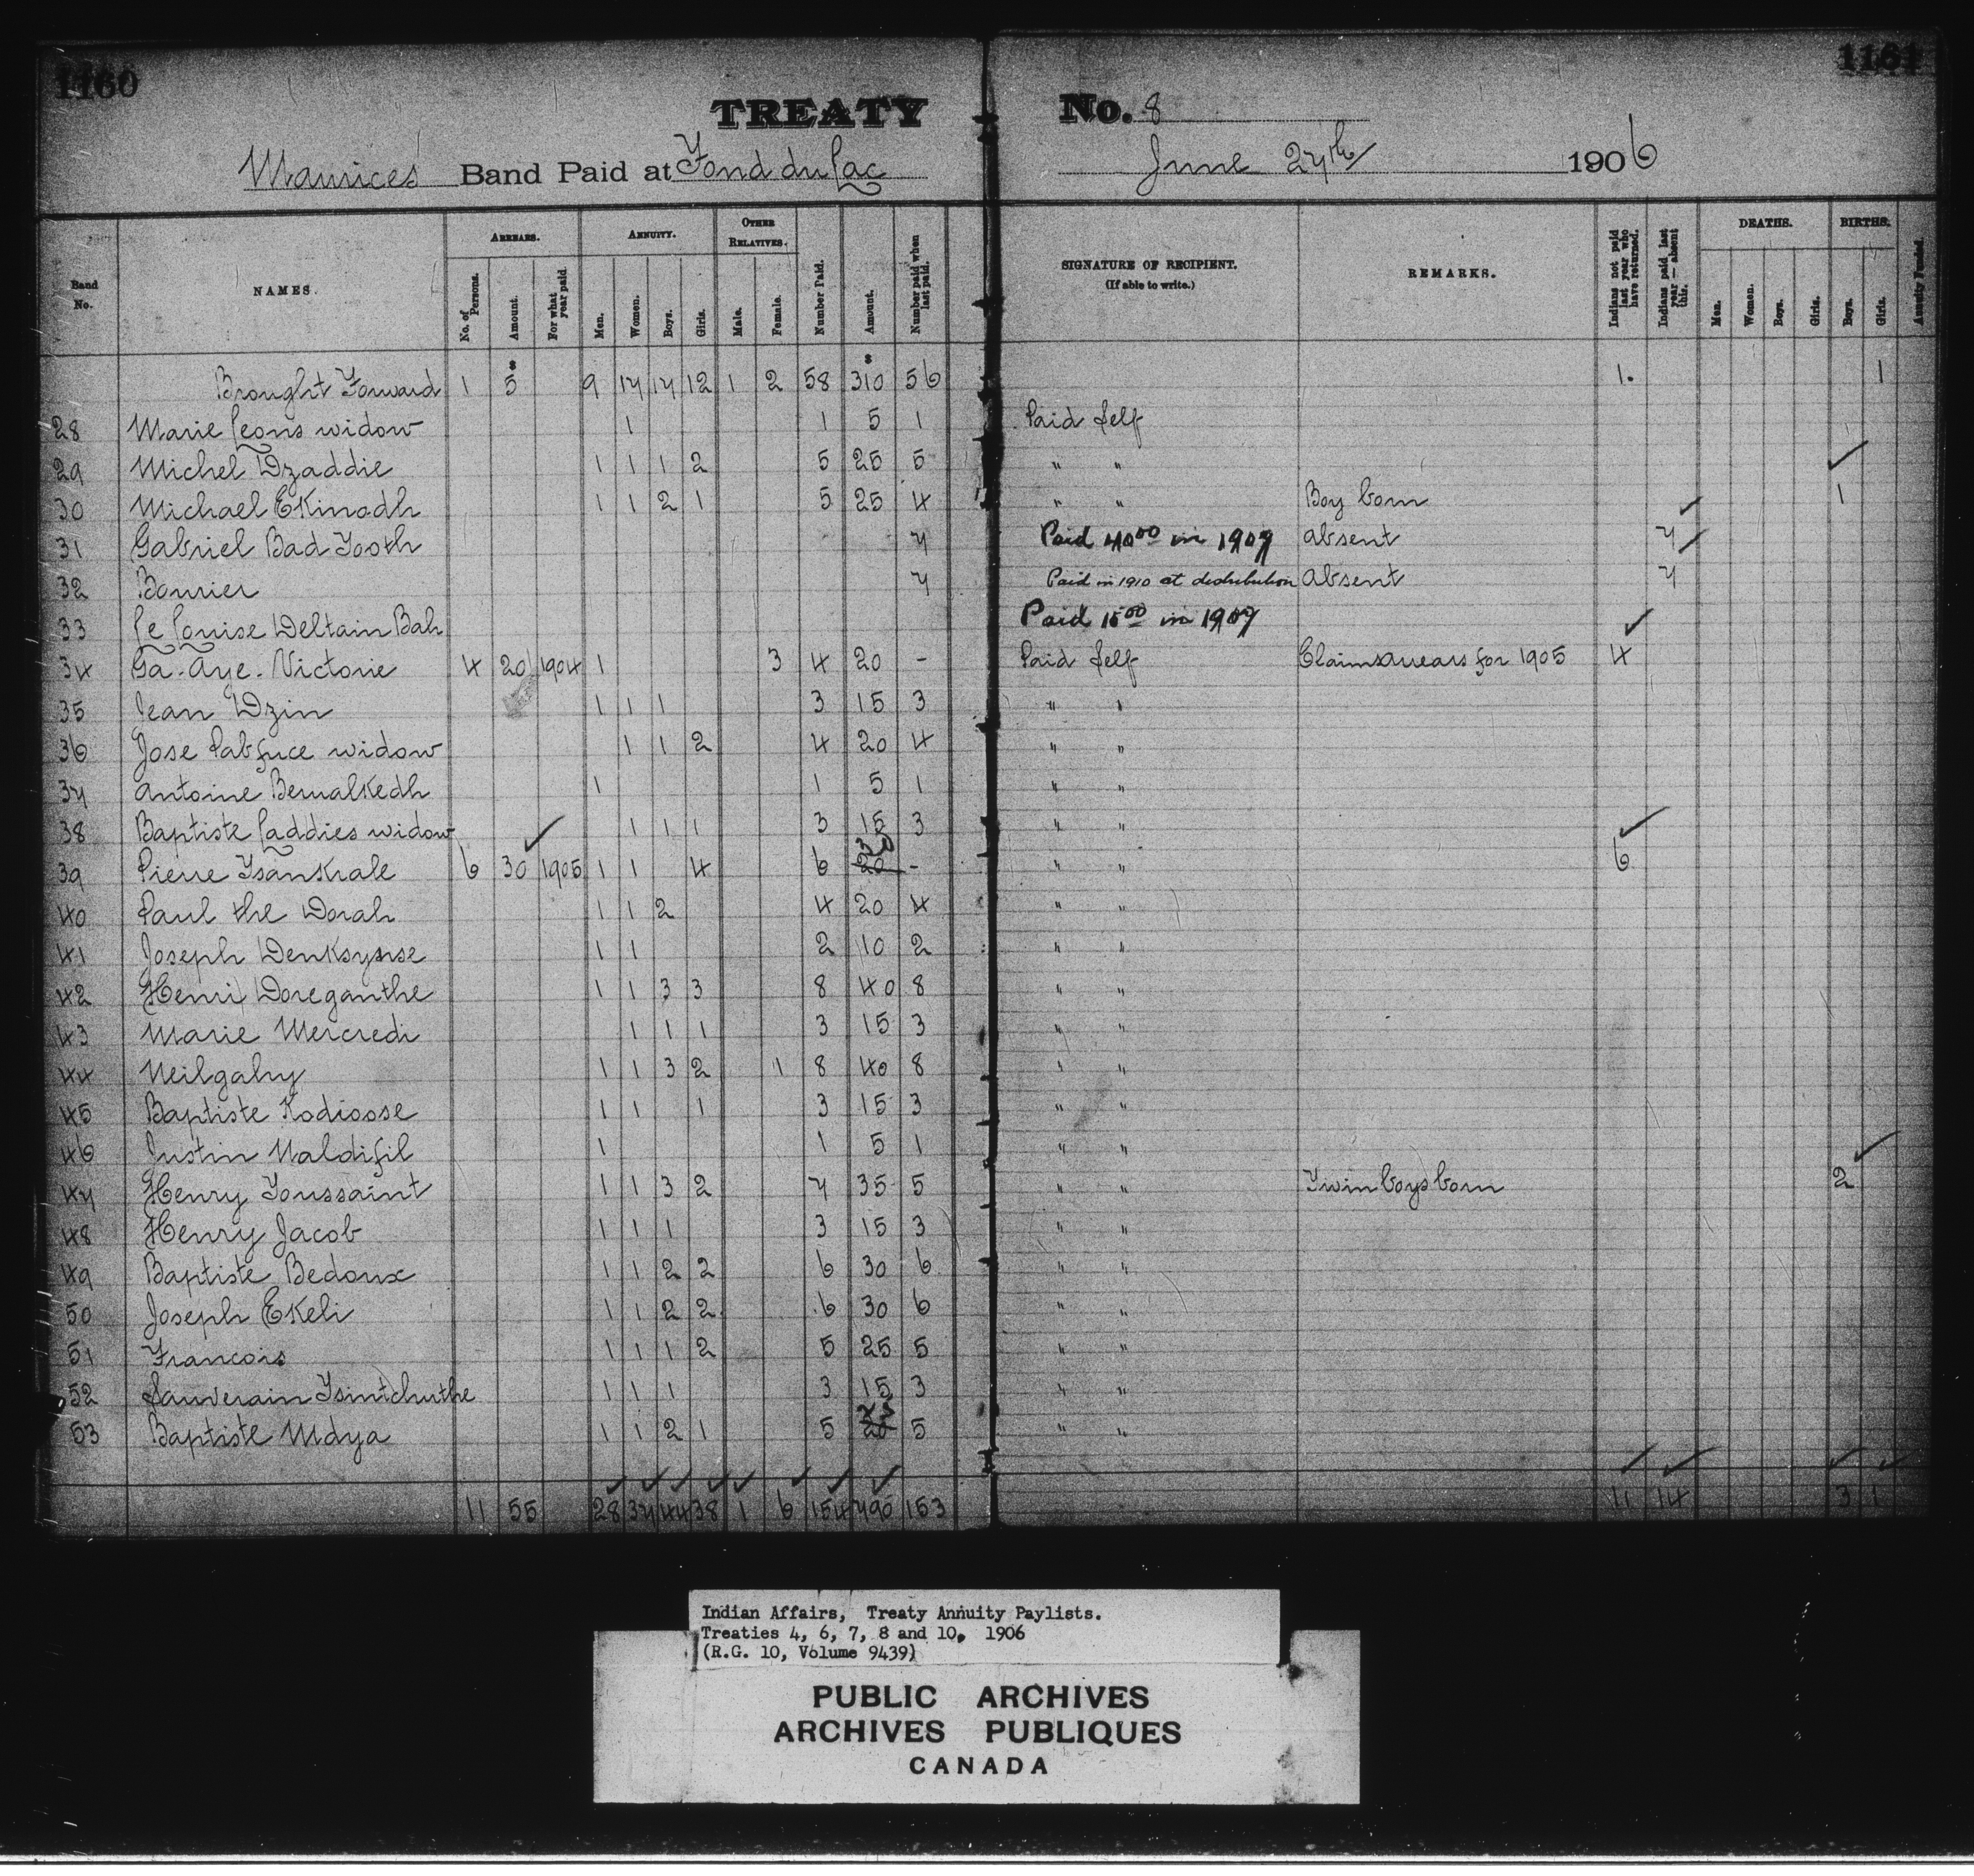 1160
1161
TREATY No. 8
Maurices' Band Paid at Fond du Lac June 27th 1906
Band No. NAMES. ARREARS. ANNUITY. OTHER RELATIVES. Number Paid. Amount. Number paid when last paid. SIGNATURE OF RECIPIENT. (If able to write.) REMARKS. Indians not paid last year who have returned. Indians paid last year — absent this. DEATHS. BIRTHS. Annuity Funded.
No. of Persons. Amount. For what year paid. Men. Women. Boys. Girls. Male. Female. Men. Women. Boys. Girls. Boys. Girls.
Brought Forward 1 5 9 17 17 12 1 2 58 310 56 1. 1
28 Marie Leons widow 1 1 5 1 Paid Self
29 Michel Dzaddie 1 1 1 2 5 25 5 " "
30 Michael Ekinadh 1 1 2 1 5 25 4 " " Boy born 1
31 Gabriel Bad Tooth 7 Paid 40.00 in 1907 absent 7
32 Bourier 7 Paid in 1910 at distribution absent 7
33 Le Louise Deltain Bah Paid 15.00 in 1907
34 Ga. Aye. Victorie 4 20 1904 1 3 4 20 - Paid Self Claims arrears for 1905 4
35 Jean Dzin 1 1 1 3 15 3 " "
36 Jose widow 1 1 2 4 20 4 " "
37 Antoine Bewalkedh 1 1 5 1 " "
38 Baptiste Laddies widow 1 1 1 3 15 3 " "
39 Pierre Tsankrale 6 30 1905 1 1 4 6 20 30 - " " 6
40 Paul the Dorah 1 1 2 4 20 4 " "
41 Joseph 1 1 2 10 2 " "
42 Henri Doreganthe 1 1 3 3 8 40 8 " "
43 Marie Mercredi 1 1 1 3 15 3 " "
44 Neilgahy 1 1 3 2 1 8 40 8 " "
45 Baptiste Kodioose 1 1 1 3 15 3 " "
46 Justin Naldifil 1 1 5 1 " "
47 Henry Toussaint 1 1 3 2 7 35 5 " " Twin boys born 2
48 Henry Jacob 1 1 1 3 15 3 " "
49 Baptiste Bedoux 1 1 2 2 6 30 6 " "
50 Joseph Ekeli 1 1 2 2 6 30 6 " "
51 Francois 1 1 1 2 5 25 5 " "
52 Sauverain Tsintchuthe 1 1 1 3 15 3 " "
53 Baptiste Mdya 1 1 2 1 5 25 5 " "
11 55 28 37 44 38 1 6 154 790 153 11 14 3 1
Indian Affairs, Treaty Annuity Paylists.
Treaties 4, 6, 7, 8 and 10, 1906
(R.G. 10, Volume 9439)
PUBLIC ARCHIVES
ARCHIVES PUBLIQUES
CANADA